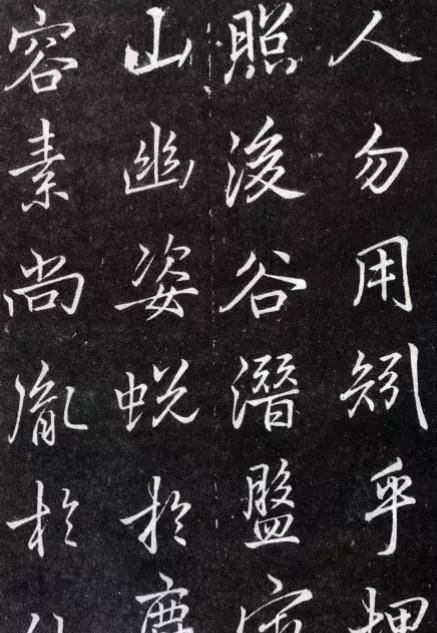 人勿用矧乎
照浚谷潛盤
山幽姿蛻於
容素尚胤於